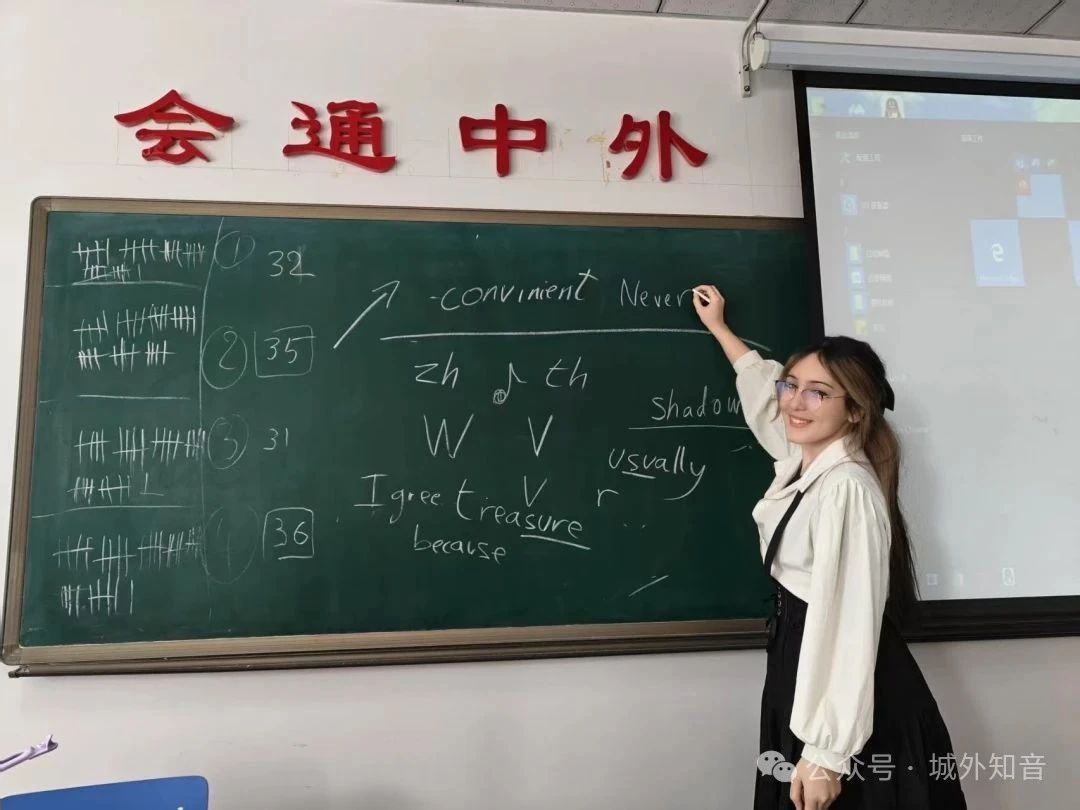 会通中外
① 32
② 35
③ 31
36
convinient Never
zh th
W V
Shadow
usually
I gree treasure V r
because
公众号 · 城外知音